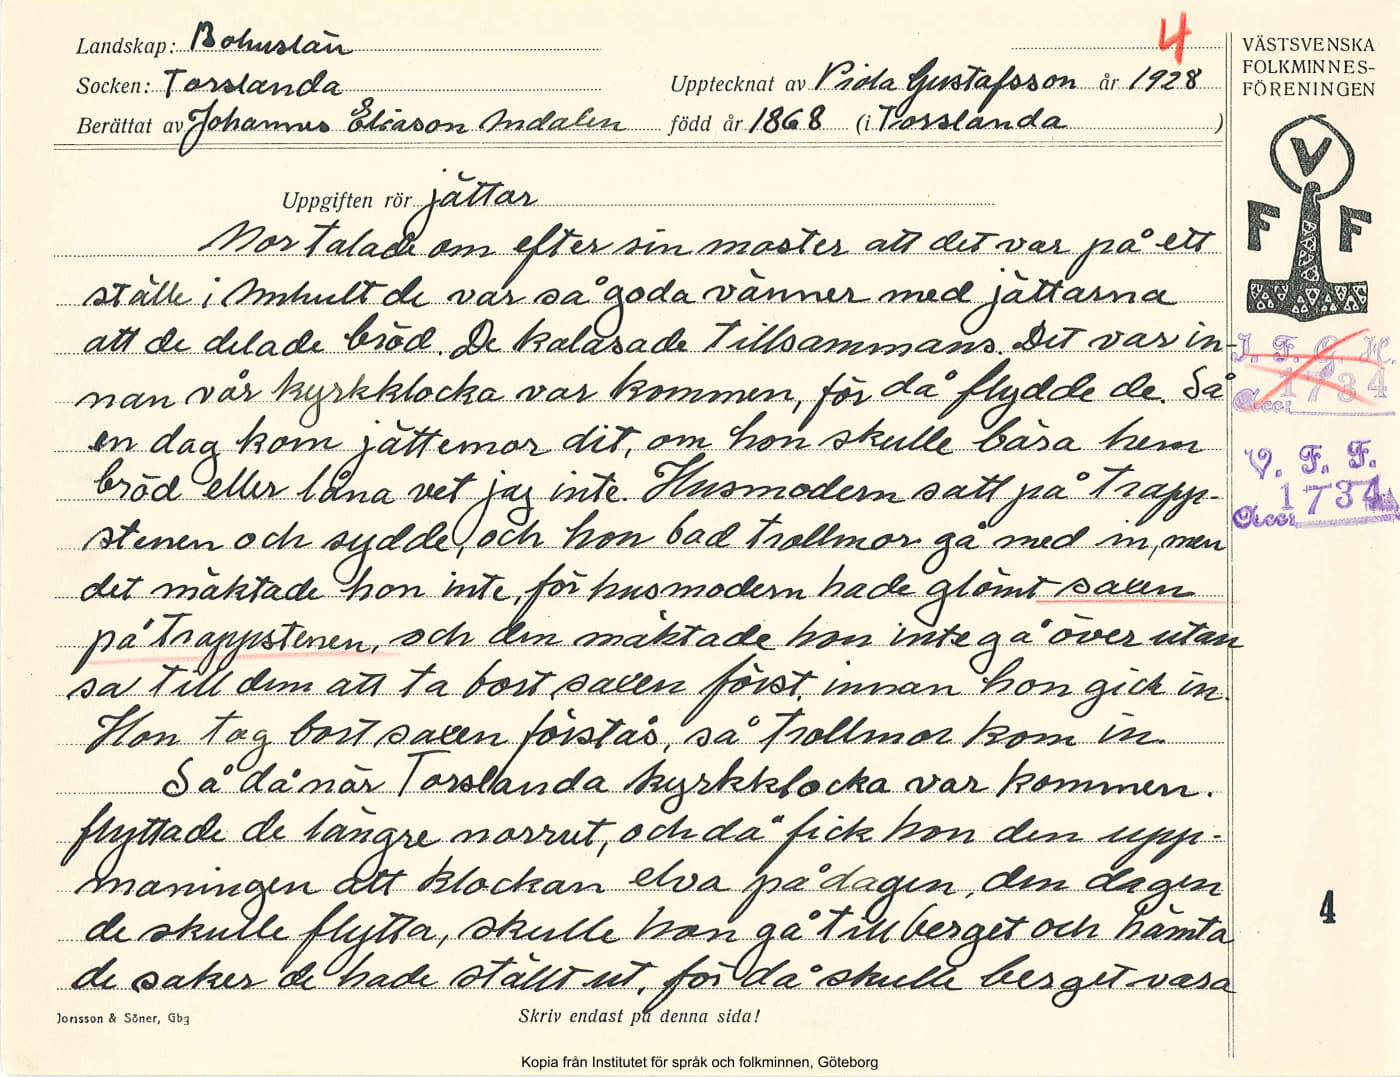 4
Landskap: Bohuslän
VÄSTSVENSKA
FOLKMINNES-
FÖRENINGEN
Socken: Torslanda
Upptecknat av Viola Gustafsson år 1928
Berättat av Johannes Eliason Andalen född år 1868 (i Torslanda)
V
F F
Uppgiften rör jättar
Mor talade om efter sin moster att det var på ett
ställe i Amhult de var så goda vänner med jättarna
att de delade bröd. De kalasade tillsammans. Det var in-
nan vår kyrkklocka var kommen, för då flydde de. Så
en dag kom jättemor dit, om hon skulle bära hem
bröd eller låna vet jag inte. Husmodern satt på trapp-
stenen och sydde, och hon bad trollmor gå med in, men
det mäktade hon inte, för husmodern hade glömt saxen
på trappstenen, och den mäktade hon inte gå över utan
sa till dem att ta bort saxen först, innan hon gick in.
Hon tog bort saxen förstås, så trollmor kom in.
Så då när Torslanda kyrkklocka var kommen.
flyttade de längre norrut, och då fick hon den upp-
maningen att klockan elva på dagen, den dagen
de skulle flytta, skulle hon gå till berget och hämta
de saker de hade ställt ut, för då skulle berget vara
I. F. G. H.
Acc: 1734
V. F. F.
Acc: 1734
4
Jonsson & Söner, Gbg
Skriv endast på denna sida!
Kopia från Institutet för språk och folkminnen, Göteborg